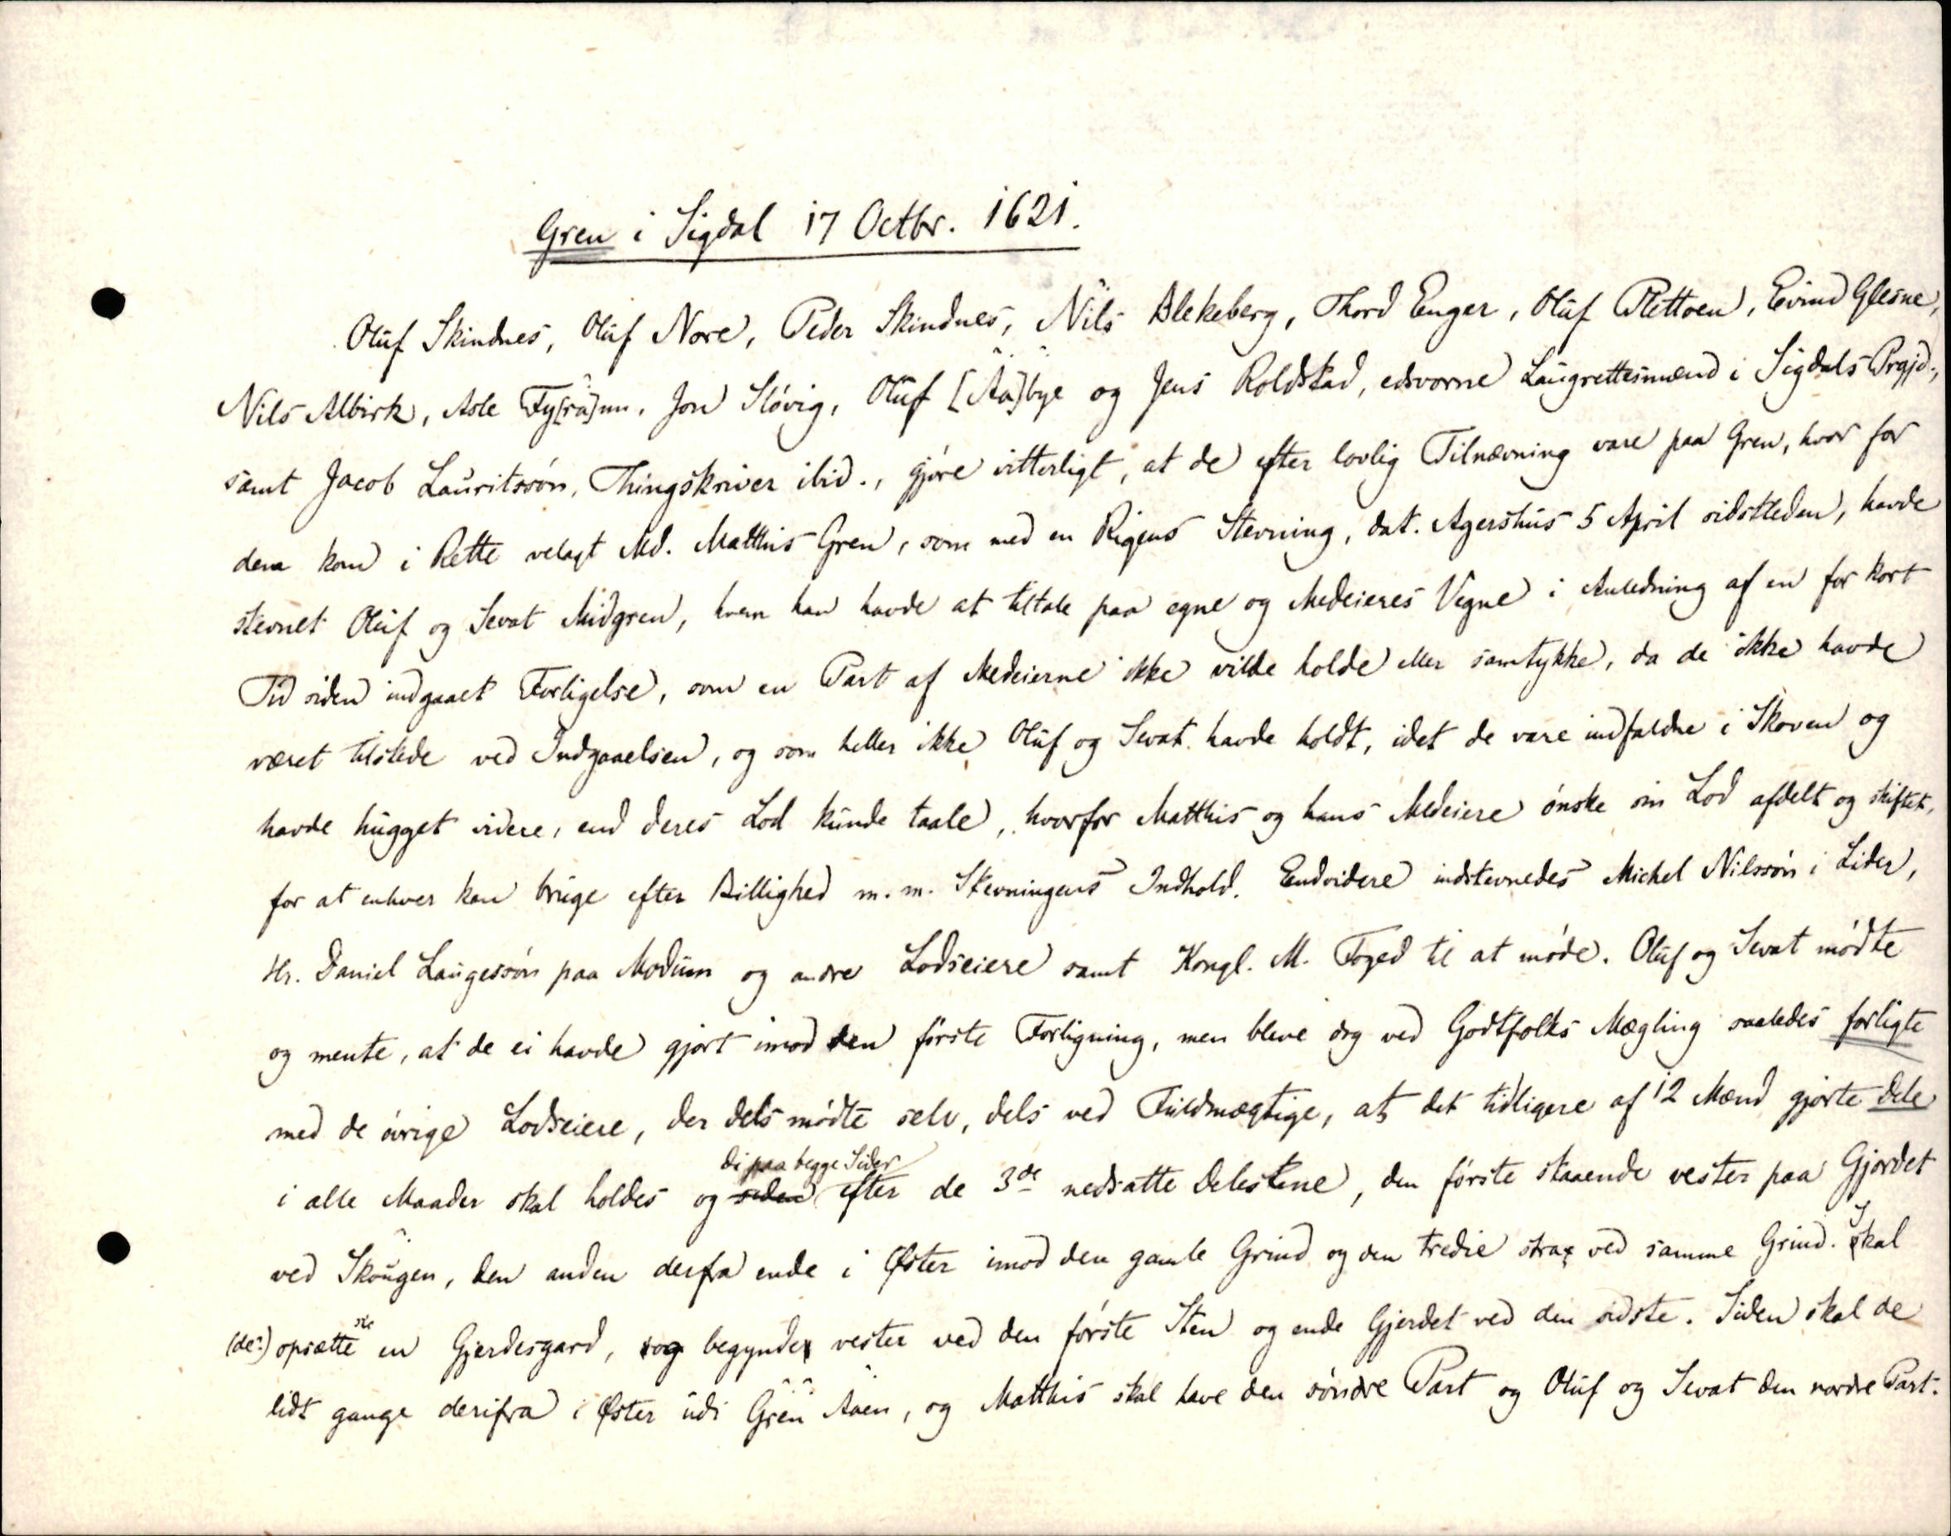 Gren i Sigdal 17 Octbr. 1621.
Oluf Skindnes, Oluf Nore, Peder Skindnes, Nils Blekeberg, Thord Enger, Oluf Plettoen, Evind Glesne,
Nils Albirk, Asle Fy[rä]nn, Jon Slóvig, Oluf [Aa]bye og Jens Roldstad, edsvorne Laugrettesmænd i Sigdals Prgjd.,
samt Jacob Lauritssön, Thingskriver ibid., gjöre vitterligt, at de efter lovlig Tilnævning vare paa Gren, hvor for
dem kom i Rette velagt Md. Matthis Gren, som med en Rigens Stevning, dat. Agershus 5 April sidstleden, havde
stevnet Oluf og Sevat Midgren, hvem han havde at tiltale paa egne og Medeieres Vegne i Anledning af en for kort
Tid siden indgaaet Forligelse, som en Part af Medeierne ikke vilde holde eller samtykke, da de ikke havde
været tilstede ved Indgaaelsen, og som heller ikke Oluf og Sevat havde holdt, idet de vare indfaldne i Skoven og
havde hugget videre, end deres Lod kunde taale, hvorfor Matthis og hans Medeiere önske sin Lod afdelt og skiftet,
for at enhver kan bruge efter Billighed m. m. Stevningens Indhold. Endvidere indstevnedes Michel Nilssön i Lider,
Hr. Daniel Laugessön paa Modum og andre Lodseiere samt Kongl. M. Foged til at möde. Oluf og Sevat mödte
og mente, at de ei havde gjort imod den förste Forligning, men bleve dog ved Godtfolks Mægling saaledes forligte
med de övrige Lodseiere, der dels mödte selv, dels ved Fuldmægtige, at det tidligere af 12 Mænd gjorte Dele
i alle Maader skal holdes og siden di paa begge Sider efter de 3de nedsatte Delestene, den förste staaende vester paa Gjordet
ved Skougen, den anden derfra ende i Öster imod den gamle Grind og den tredie strax ved samme Grind. Skal
(de:) opsætte ste en Gjerdesgard, og begynde vester ved den förste Sten og ende Gjerdet ved den sidste. Siden skal de
lidt gange derifra i Öster udi Gren Aaen, og Matthis skal have den söndre Part og Oluf og Sevat den nordre Part.